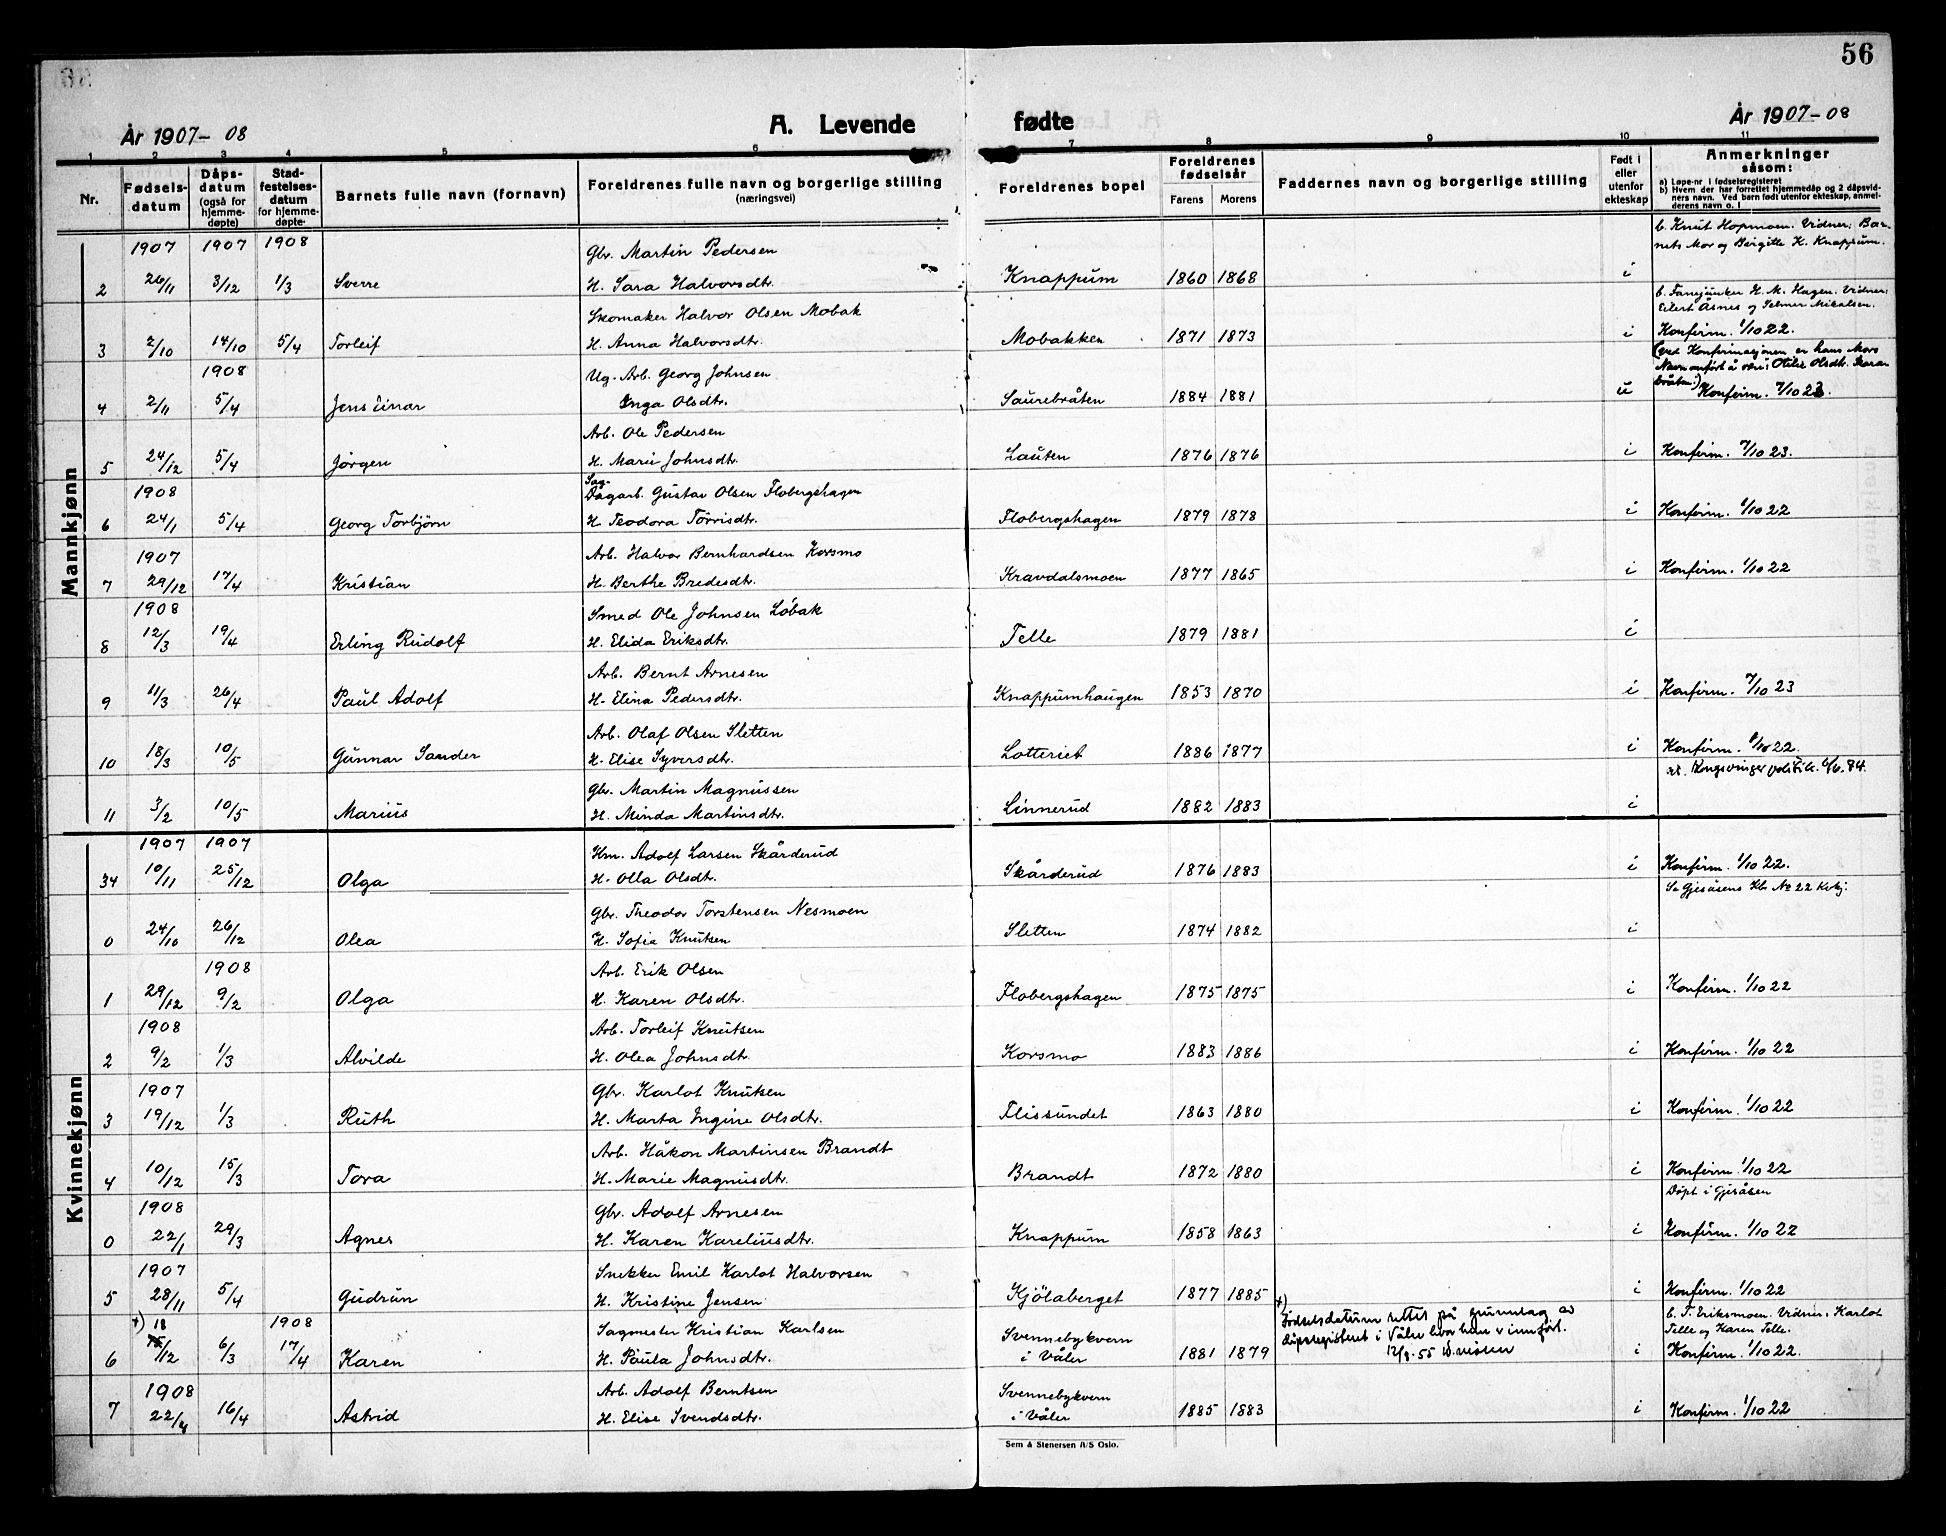 56
År 1907-08
A. Levende fødte
År 1907-08
1 2 3 4 5 6 7 8 9 10 11
Nr. | Fødselsdatum | Dåpsdatum (også for hjemmedøpte) | Stadfestelsesdatum for hjemmedøpte | Barnets fulle navn (fornavn) | Foreldrenes fulle navn og borgerlige stilling (næringsvei) | Foreldrenes bopel | Foreldrenes fødselsår Farens Morens | Faddernes navn og borgerlige stilling | Født i eller utenfor ekteskap | Anmerkninger såsom: a) Løpe-nr i fødselsregisteret b) Hvem der har forrettet hjemmedåp og 2 dåpsvidners navn. Ved barn født utenfor ekteskap, anmelderens navn o. l
Mannkjønn
1907 1907 1908 Gbr. Martin Pedersen b. Knut Hopmoen. Vidner: Barnets Mor og Birgitte K. Knappum.
2 26/11 3/12 1/3 Sverre H. Sara Halvorsdtr. Knappum 1860 1868 i
Skomaker Halvor Olsen Mobak b. Fanejunker H. M. Hagen. Vidner: Eilert Åsnes og Selmer Mikalsen.
3 2/10 14/10 5/4 Torleif H. Anna Halvorsdtr. Mobakken 1871 1873 i Konfirm. 1/10 22.
1908 Ug. Arb. Georg Johnsen (ved Konfirmasjonen er hans Mors Navn anført å være: Otilie Olsdt.
4 2/11 5/4 Jens Einar Inga Olsdtr. Saurebråten 1884 1881 u Konfirm. 7/10 23.
Arb. Ole Pedersen
5 24/12 5/4 Jørgen H. Marie Johnsdtr. Lauten 1876 1876 i Konfirm. 7/10 23.
1908 Sag- Dagarb. Gustav Olsen Flobergshagen
6 24/1 5/4 Georg Torbjörn H. Teodora Törrisdtr. Flobergshagen 1879 1878 i Konfirm. 1/10 22
1907 Arb. Halvor Bernhardsen Korsmo
7 29/12 17/4 Kristian H. Berthe Bredesdtr. Kravdalsmoen 1877 1865 i Konfirm. 1/10 22
1908 Smed Ole Johnsen Löbak
8 12/3 19/4 Erling Rudolf H. Elida Eriksdtr. Telle 1879 1881 i
Arb. Bernt Arnesen
9 11/3 26/4 Paul Adolf H. Elina Pedersdtr. Knappumhaugen 1853 1870 i Konfirm. 7/10 23
Arb. Olaf Olsen Sletten
10 18/3 10/5 Gunnar Sander H. Elise Syversdtr. Lotteriet 1886 1877 i Konfirm. 1/10 22.
Gbr. Martin Magnussen at. Kongsvinger politik. 6/6.84.
11 3/2 10/5 Marius H. Minda Martinsdtr. Linnerud 1882 1883 i
Kvinnekjønn
1907 1907 Km. Adolf Larsen Skårderud
34 10/11 25/12 Olga H. Olla Olsdt. Skårderud 1876 1883 i Konfirm. 1/10 22.
Gbr. Theodor Torstensen Nesmoen Se Gjesåsens Kb. № 22 Kvkj.
0 24/10 26/12 Olea H. Sofie Knutsen Sletten 1874 1882 i
1908 Arb. Erik Olsen
1 29/12 9/2 Olga H. Karen Olsdtr. Flobergshagen 1875 1875 i Konfirm. 1/10 22
1908 Arb. Torleif Knutsen
2 9/2 1/3 Alvilde H. Olea Johnsdtr. Korsmo 1883 1886 i Konfirm. 1/10 22
1907 Gbr. Karlot Knutsen
3 19/12 1/3 Ruth H. Marta Ingine Olsdtr. Flissundet 1863 1880 i Konfirm. 1/10 22
Arb. Håkon Martinsen Brandt
4 10/12 15/3 Tora H. Marie Magnusdtr. Brandt 1872 1880 i Konfirm. 1/10 22
1908 Gbr. Adolf Arnesen Döpt i Gjesåsen
0 22/1 29/3 Agnes H. Karen Kareliusdtr. Knappum 1858 1863 i Konfirm. 1/10 22
1907 Snekker Emil Karlot Halvorsen
5 28/11 5/4 Gudrun H. Kristine Jensen Kjölaberget 1877 1885 i Konfirm. 1/10 22
+) 18 1908 Sagmester Kristian Karlsen Svennebykvern +) Födselsdatum rettet på grunnlag av dåpsregisteret i Våler hvor hun er innfört. 12/9.55 b. T. Eriksmoen. Vidner: Karlot Telle og Karen Telle.
6 15/12 6/3 17/4 Karen H. Paula Johnsdtr. i Våler 1881 1879 i Konfirm. 1/10 22.
1908 Arb. Adolf Berntsen Svennebykvern
7 22/4 16/4 Astrid H. Elise Svendsdtr. i Våler 1885 1883 i Konfirm. 1/10 22
Sem & Stenersen A/S Oslo.